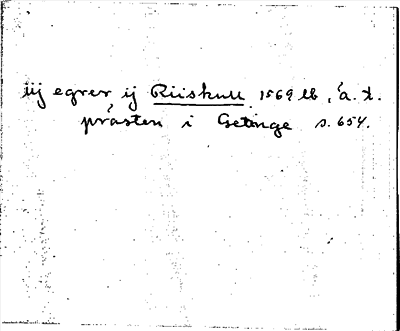 iij egrer ij Riiskull 1569 lb, å. t.
prästen i Getinge s. 654.